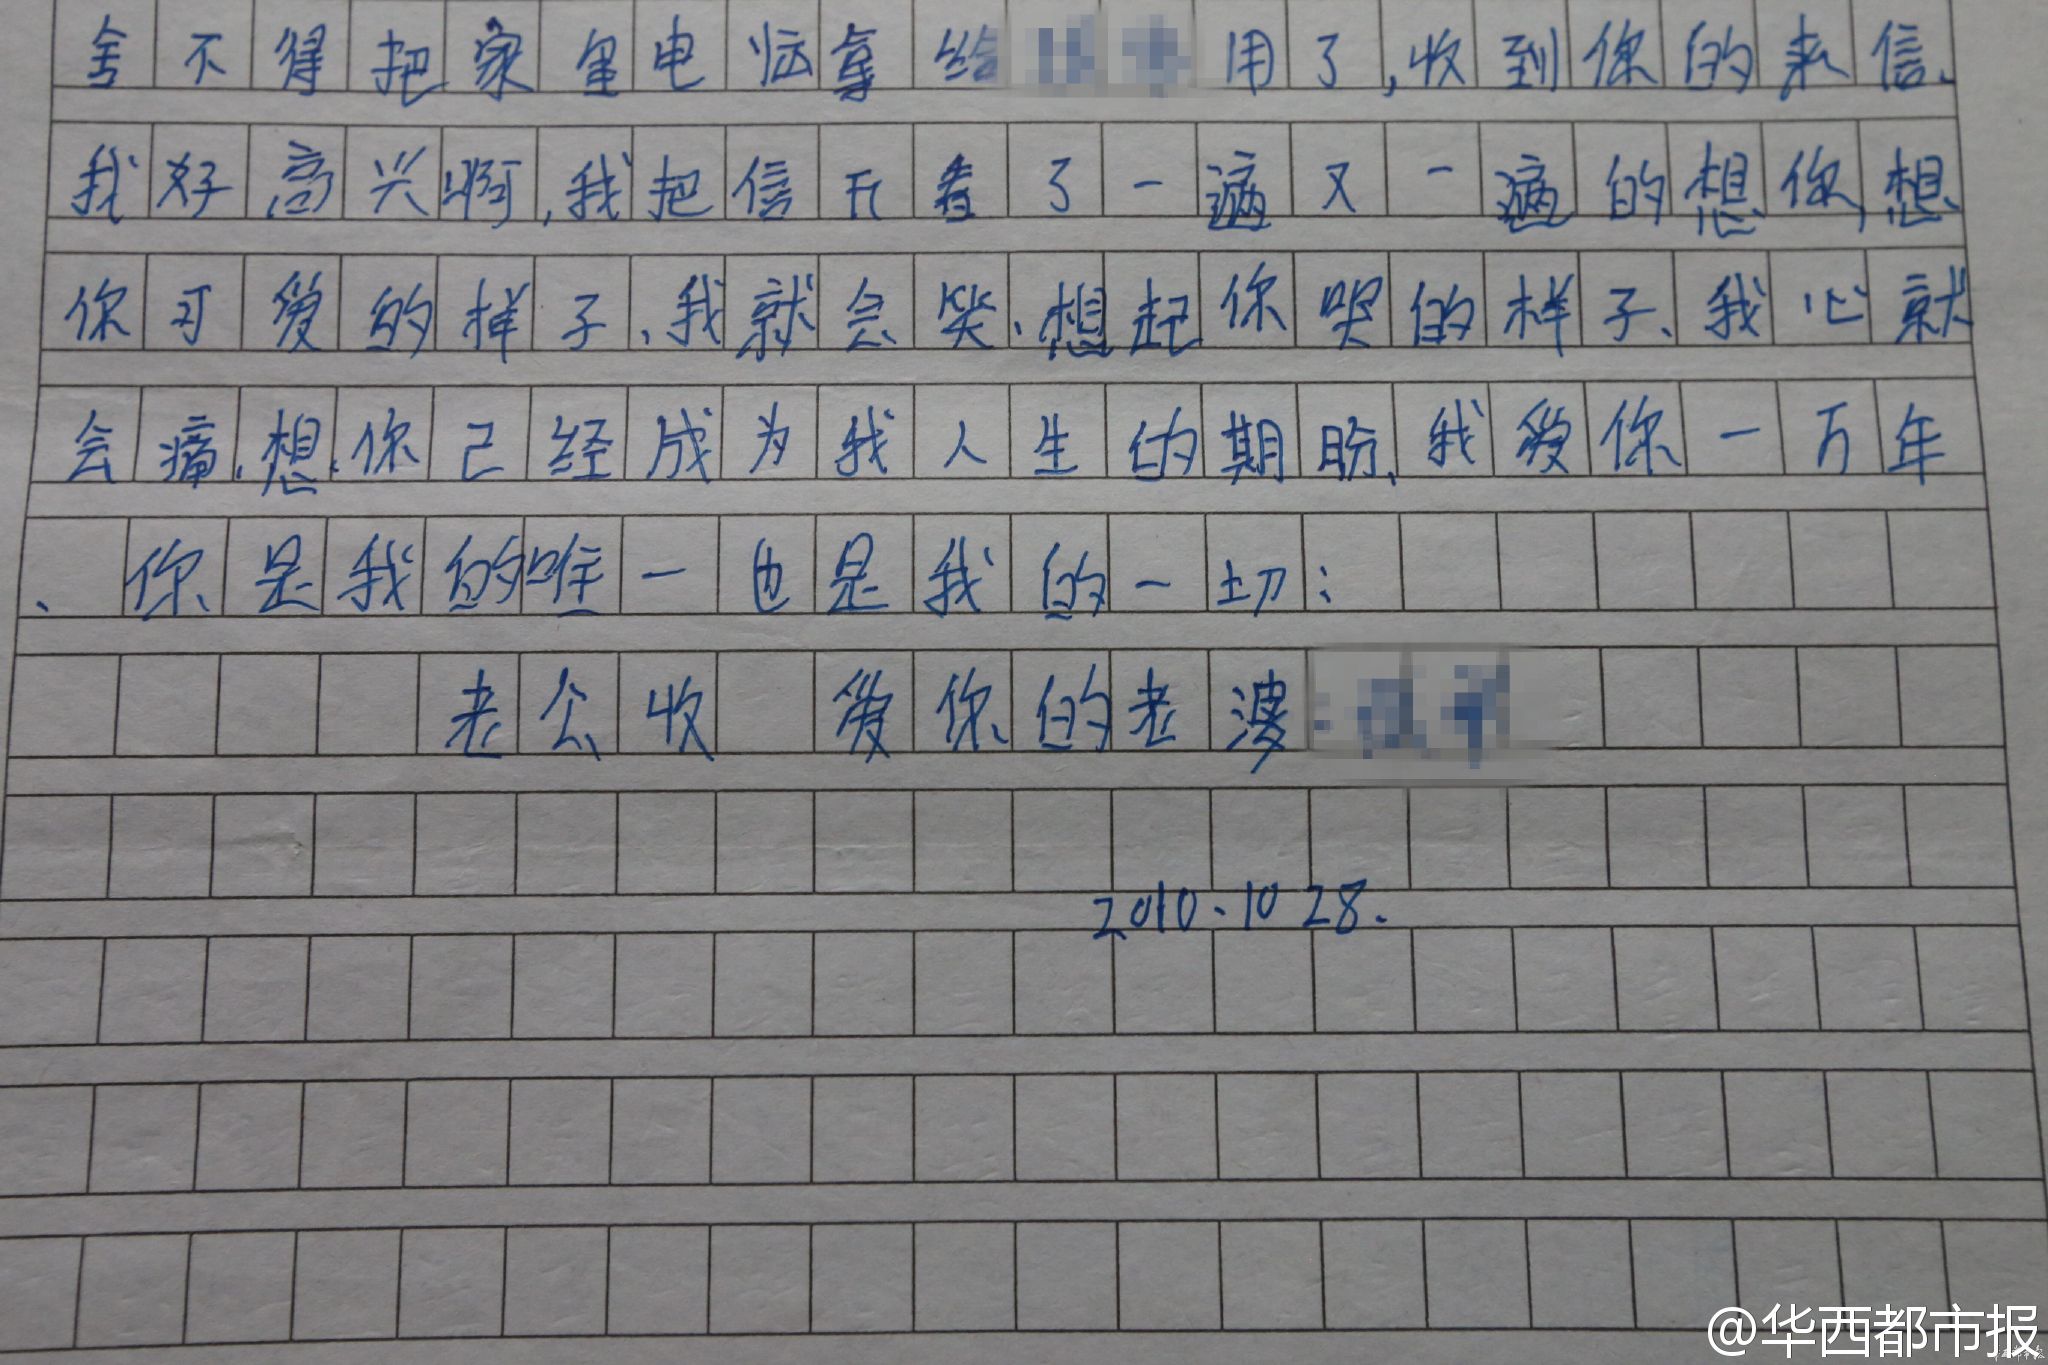 舍不得把家里电脑拿给用了,收到你的来信、
我好高兴啊,我把信开看了一遍又一遍的想你,想
你可爱的样子、我就会笑、想起你哭的样子、我心就
会痛、想、你己经成为我人生的期盼、我爱你一万年
、你是我的唯一也是我的一切:
老公收 爱你的老婆
2010.10 28.
@华西都市报